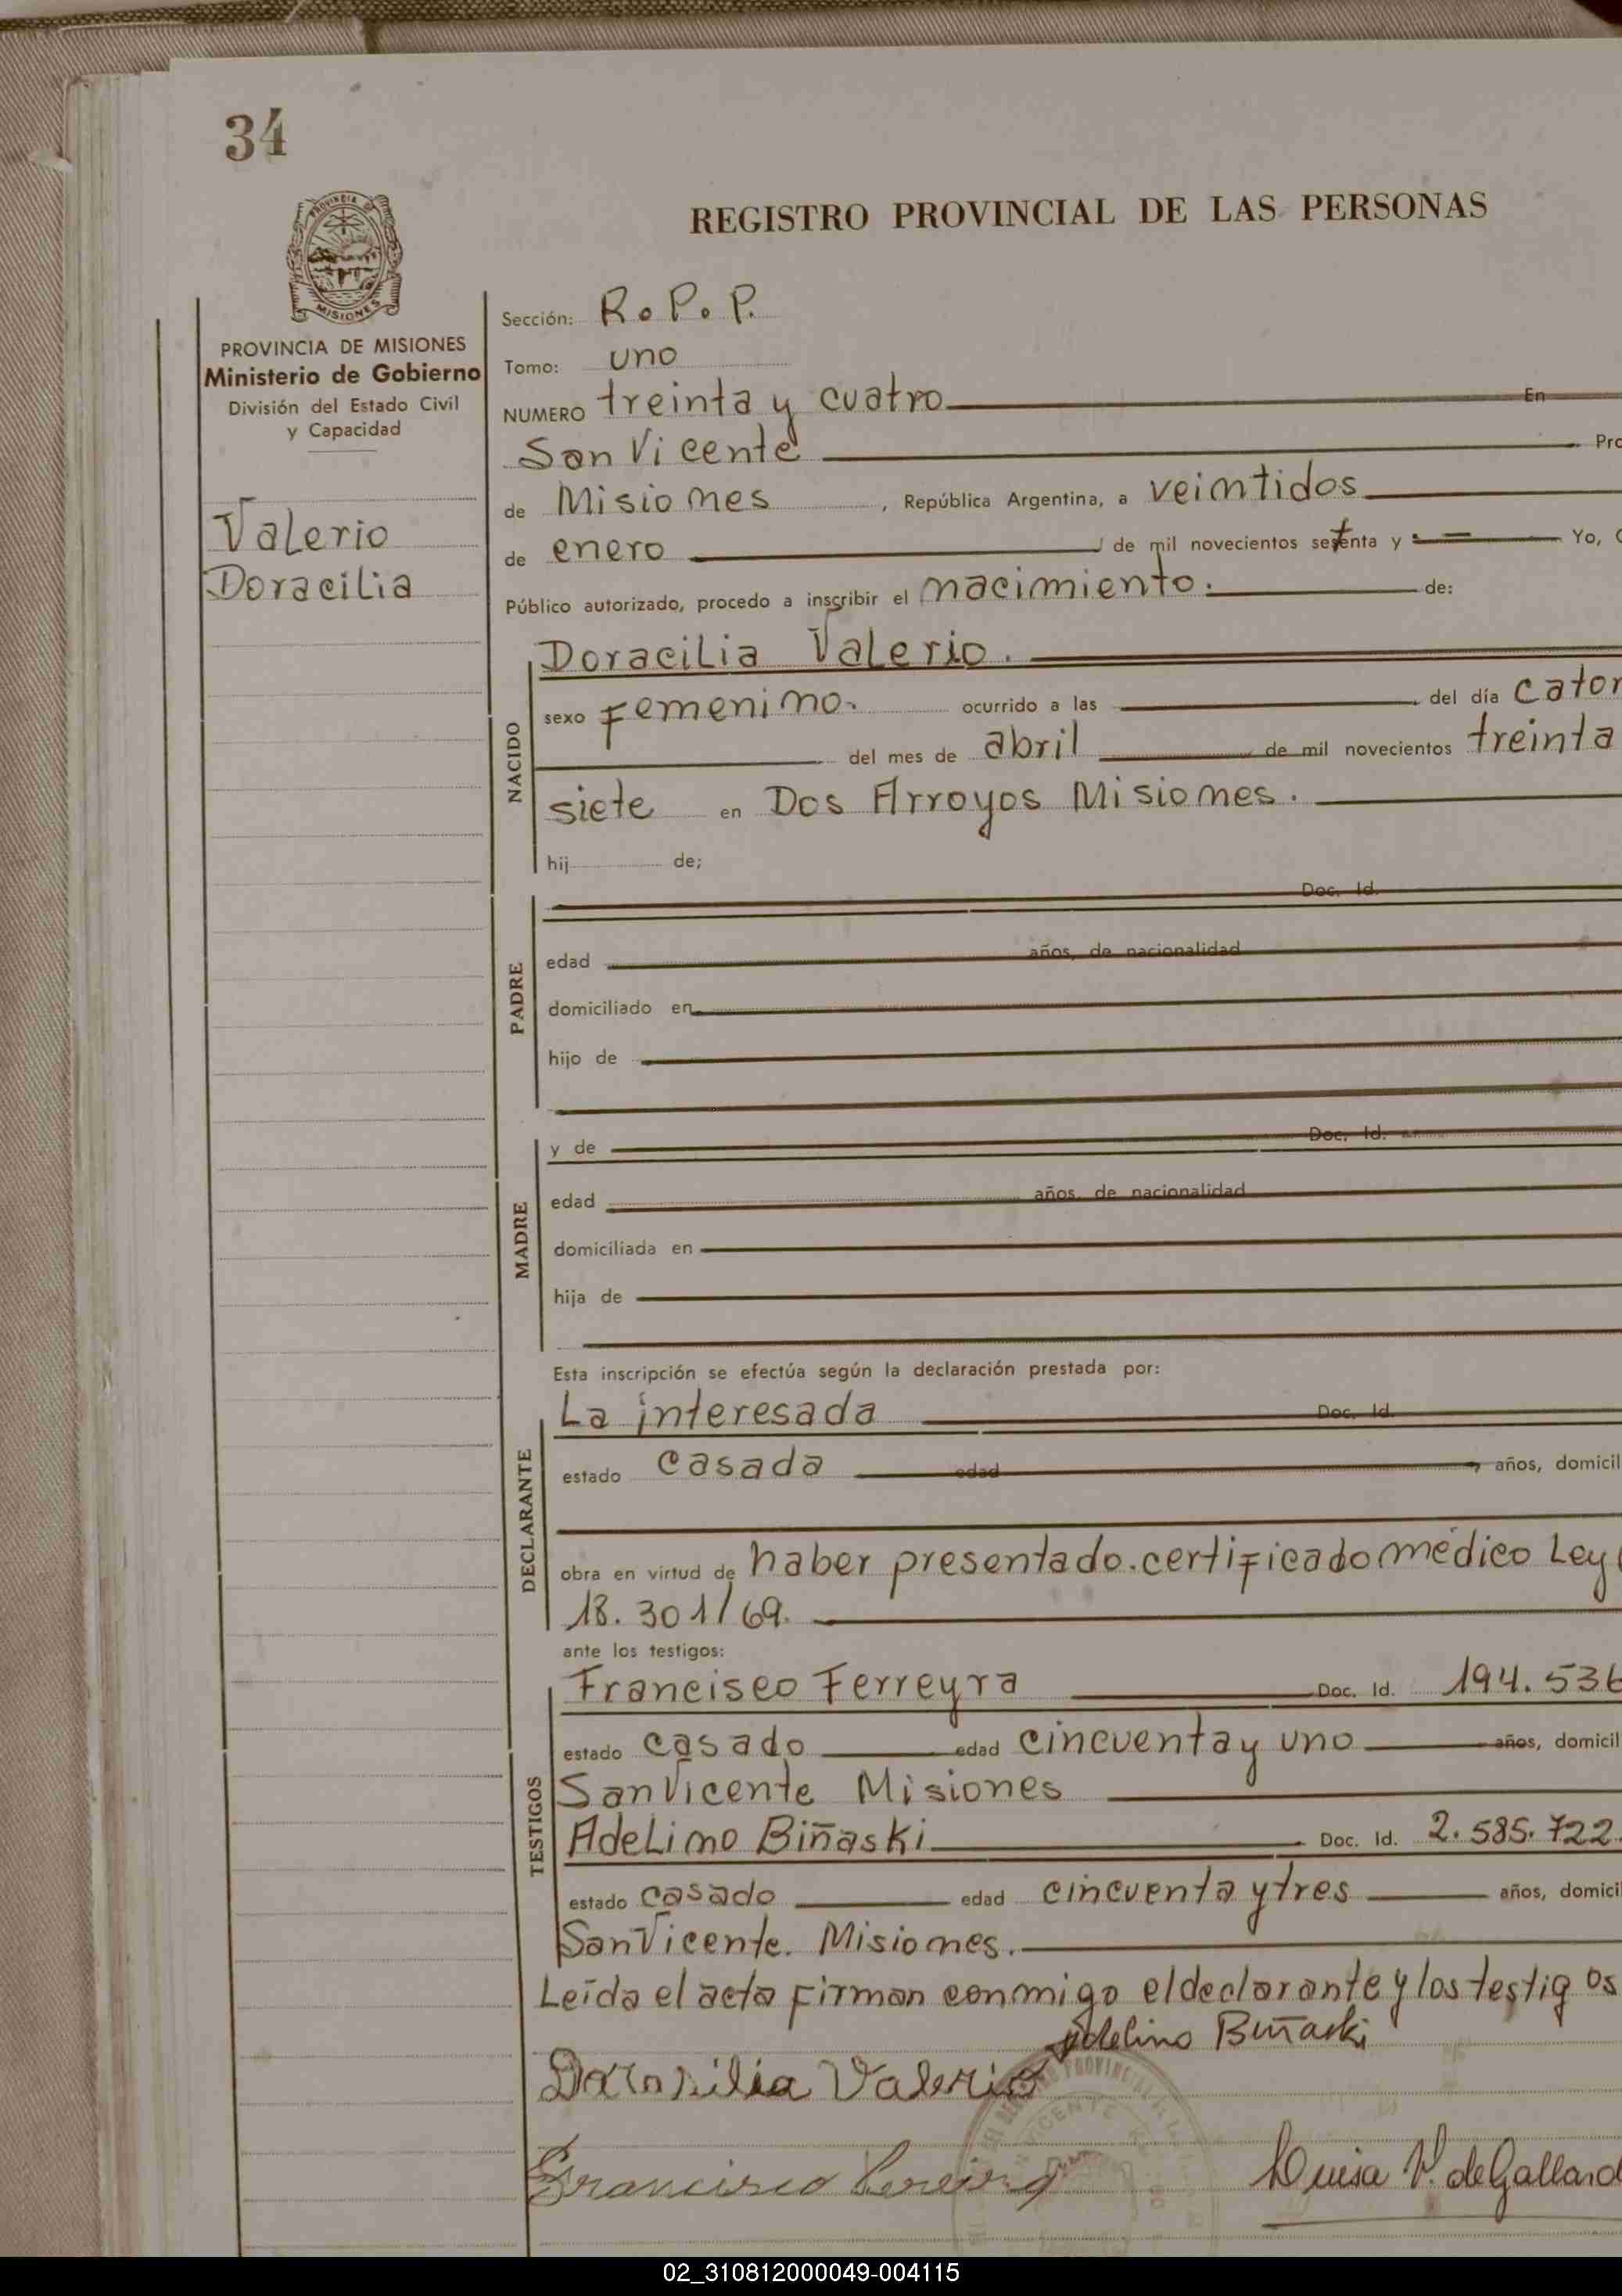 34
REGISTRO PROVINCIAL DE LAS PERSONAS
PROVINCIA DE MISIONES
Ministerio de Gobierno
División del Estado Civil
y Capacidad
Valerio
Doracilia
Sección: R.P.P.
Tomo: uno
NUMERO treinta y cuatro En
San Vicente
de Misiones, República Argentina, a veintidos
de enero de mil novecientos setenta y Yo,
Público autorizado, procedo a inscribir el nacimiento. de:
NACIDO
Doracilia Valerio.
sexo femenino. ocurrido a las del día
del mes de abril de mil novecientos treinta
siete en Dos Arroyos Misiones.
hij de;
PADRE
Doc. Id.
edad años, de nacionalidad
domiciliado en
hijo de
MADRE
y de Doc. Id.
edad años, de nacionalidad
domiciliada en
hija de
Esta inscripción se efectúa según la declaración prestada por:
DECLARANTE
La interesada Doc. Id.
estado casada edad años, domicil
obra en virtud de haber presentado. certificado médico Ley
18.301/69.
ante los testigos:
TESTIGOS
Francisco Ferreyra Doc. Id. 194.536
estado casado edad cincuenta y uno años, domicil
San Vicente Misiones
Adelino Biñaski Doc. Id. 2.585.722
estado casado edad cincuenta y tres años, domici
San Vicente. Misiones.
Leída el acta firman conmigo el declarante y los testigos
Adelino Biñaski
Valerio
Francisco
Luisa V. de Gallard
02_310812000049-004115